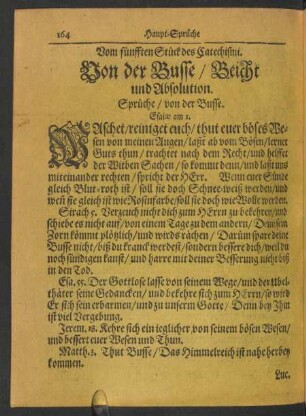 164 Haupt-Sprüche
Vom fünfften Stück des Catechismi.
Von der Busse / Beicht
und Absolution.
Sprüche / von der Busse.
Esaiæ am 1.
WAschet / reiniget euch / thut euer böses We-
sen von meinen Augen / laßt ab vom Bösen / lernet
Guts thun / trachtet nach dem Recht / und helffet
der Witben Sachen / so kommt denn / und laßt uns
miteinander rechten / spricht der HErr. Wenn euer Sünde
gleich Blut-roth ist / soll sie doch Schnee-weiß werden / und
weñ sie gleich ist wie Rosinfarbe / soll sie doch wie Wolle werden.
Sirach 5. Verzeuch nicht dich zum HErrn zu bekehren / und
schiebe es nicht auf / von einem Tage zu dem andern / Denn sein
Zorn kömmt plötzlich / und wirds rächen / Darum spare deine
Busse nicht / biß du kranck werdest / sondern bessere dich / weil du
noch sündigen kanst / und harre mit deiner Besserung nicht biß
in den Tod.
Esa. 55. Der Gottlose lasse von seinem Wege / und der Übel-
thäter seine Gedancken / und bekehre sich zum HErrn / so wird
Er sich sein erbarmen / und zu unserm Gotte / Denn bey Jhm
ist viel Vergebung.
Jerem. 18. Kehre sich ein ieglicher von seinem bösen Wesen /
und bessert euer Wesen und Thun.
Matth. 3. Thut Busse / Das Himmelreich ist nahe herbey
kommen.
Luc.